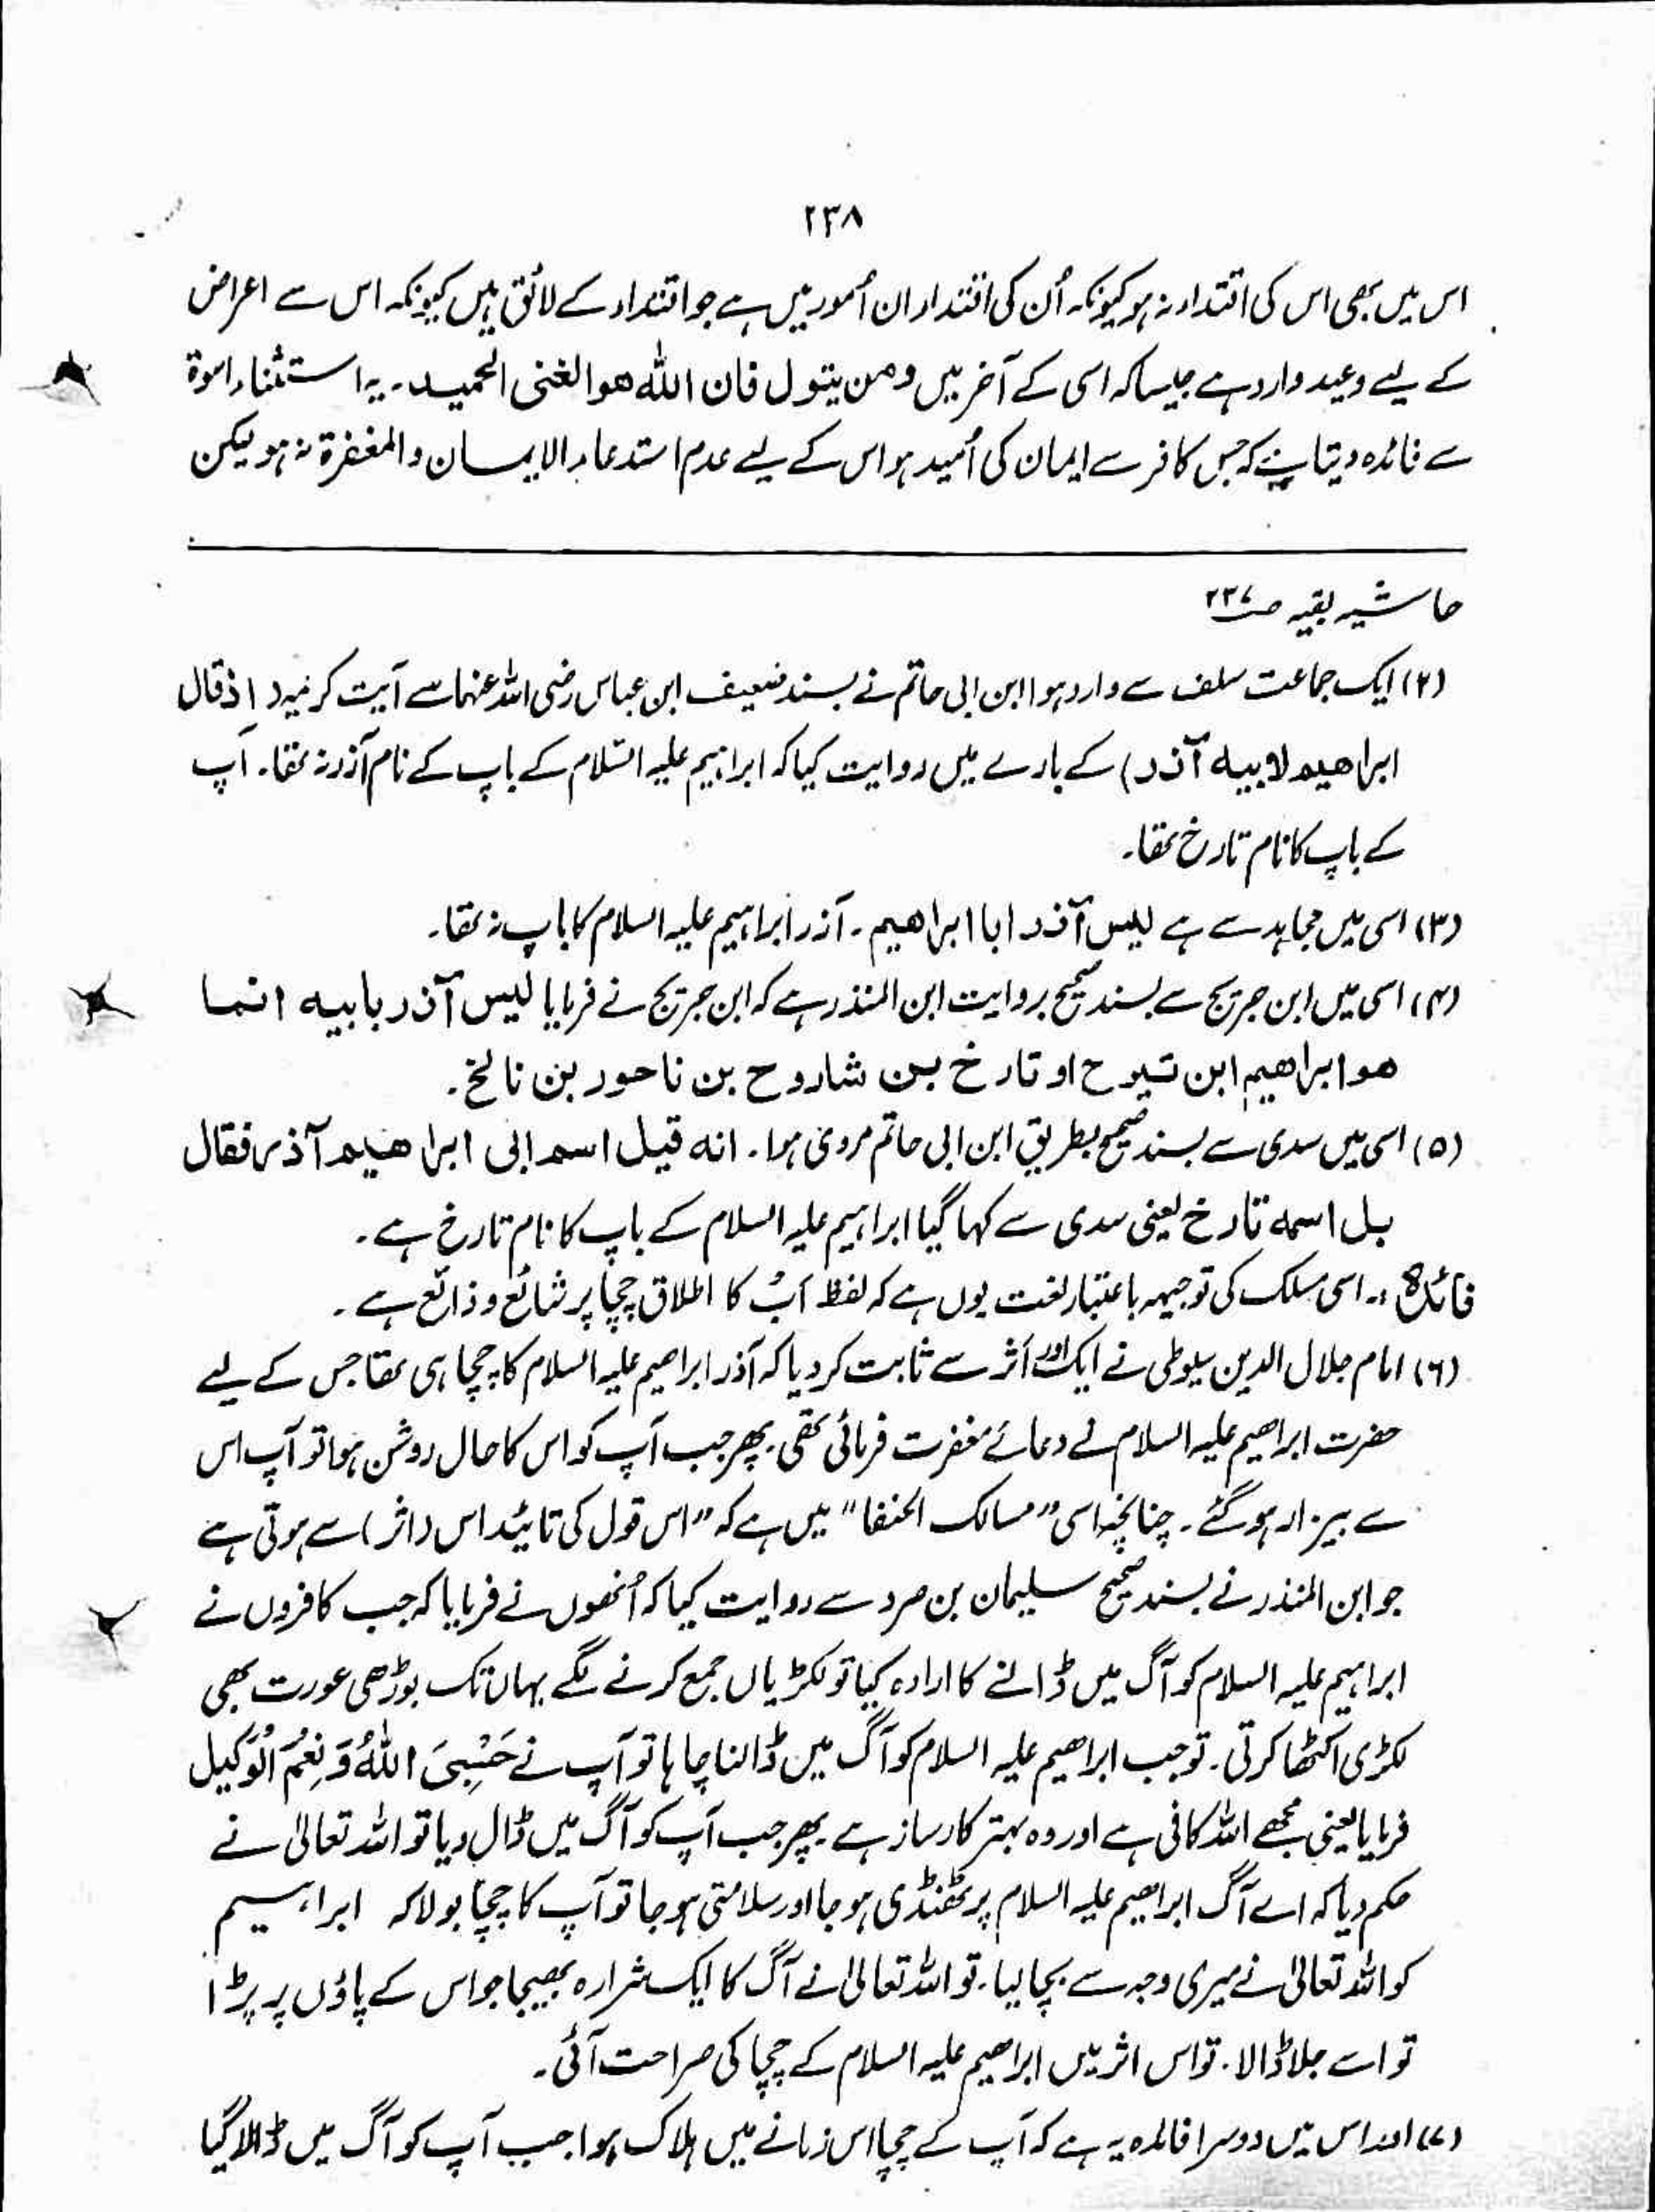 ۲۳۸
اس میں بھی اس کی اقتداء نہ ہو کیونکہ اُن کی اقتداء ان اُمور میں ہے جو اقتداء کے لائق ہیں کیونکہ اس سے اعراض
کے لیے وعید وارد ہے جیسا کہ اسی کے آخر میں ومن یتول فان اللہ ھو الغنی الحمید۔ یہ استثناء اسوۃ
سے فائدہ دیتا ہے کہ جس کافر سے ایمان کی اُمید ہو اس کے لیے عدم استدعاء الایمان والمغفرۃ نہ ہو لیکن
حاشیہ بقیہ صـ ۲۳۷
(۲) ایک جماعت سلف سے وارد ہوا ابن ابی حاتم نے بسند ضعیف ابن عباس رضی اللہ عنہما سے آیت کریمہ (اذ قال
ابراھیم لابیہ آذر) کے بارے میں روایت کیا کہ ابراہیم علیہ السّلام کے باپ کے نام آزر نہ تھا۔ آپ
کے باپ کا نام تارخ تھا۔
(۳) اسی میں مجاہد سے ہے لیس آذر ابا ابراھیم۔ آذر ابراہیم علیہ السلام کا باپ نہ تھا۔
(۴) اسی میں ابن جریج سے بسند صحیح بروایت ابن المنذر ہے کہ ابن جریج نے فرمایا لیس آذر بابیہ انما
ھو ابراھیم ابن تیرح او تارخ بن شاروح بن ناحور بن فالخ۔
(۵) اسی میں سدی سے بسند صحیح بطریق ابن ابی حاتم مروی ہوا۔ انہ قیل اسم ابی ابراھیم آذر فقال
بل اسمہ تارخ یعنی سدی سے کہا گیا ابراہیم علیہ السلام کے باپ کا نام تارخ ہے۔
فائدہ :۔ اسی مسلک کی توجیہہ باعتبار لغت یوں ہے کہ لفظ اَبْ کا اطلاق چچا پر شائع و ذائع ہے۔
(۶) امام جلال الدین سیوطی نے ایک اور اَثر سے ثابت کردیا کہ آذر ابراھیم علیہ السلام کا چچا ہی تھا جس کے لیے
حضرت ابراھیم علیہ السلام نے دعائے مغفرت فرمائی تھی پھر جب آپ کو اس کا حال روشن ہوا تو آپ اس
سے بیزار ہوگئے۔ چنانچہ اسی "مسالک الحنفا" میں ہے کہ "اس قول کی تائید اس (اثر) سے ہوتی ہے
جو ابن المنذر نے بسند صحیح سلیمان بن صرد سے روایت کیا کہ اُنھوں نے فرمایا کہ جب کافروں نے
ابراہیم علیہ السلام کو آگ میں ڈالنے کا ارادہ کیا تو لکڑیاں جمع کرنے لگے یہاں تک بوڑھی عورت بھی
لکڑی اکٹھا کرتی۔ تو جب ابراھیم علیہ السلام کو آگ میں ڈالنا چاہا تو آپ نے حَسْبِیَ اللّٰهُ وَنِعْمَ الْوَکِیل
فرمایا یعنی مجھے اللہ کافی ہے اور وہ بہتر کارساز ہے پھر جب آپ کو آگ میں ڈال دیا تو اللہ تعالیٰ نے
حکم دیا کہ اے آگ ابراھیم علیہ السلام پر ٹھنڈی ہوجا اور سلامتی ہوجا تو آپ کا چچا بولا کہ ابراہیم
کو اللہ تعالیٰ نے میری وجہ سے بچالیا۔ تو اللہ تعالیٰ نے آگ کا ایک شرارہ بھیجا جو اس کے پاؤں پر پڑا
تو اسے جلا ڈالا۔ تو اس اثر میں ابراھیم علیہ السلام کے چچا کی صراحت آئی۔
(۷) اور اس میں دوسرا فائدہ یہ ہے کہ آپ کے چچا اس زمانے میں ہلاک ہوا جب آپ کو آگ میں ڈالا گیا